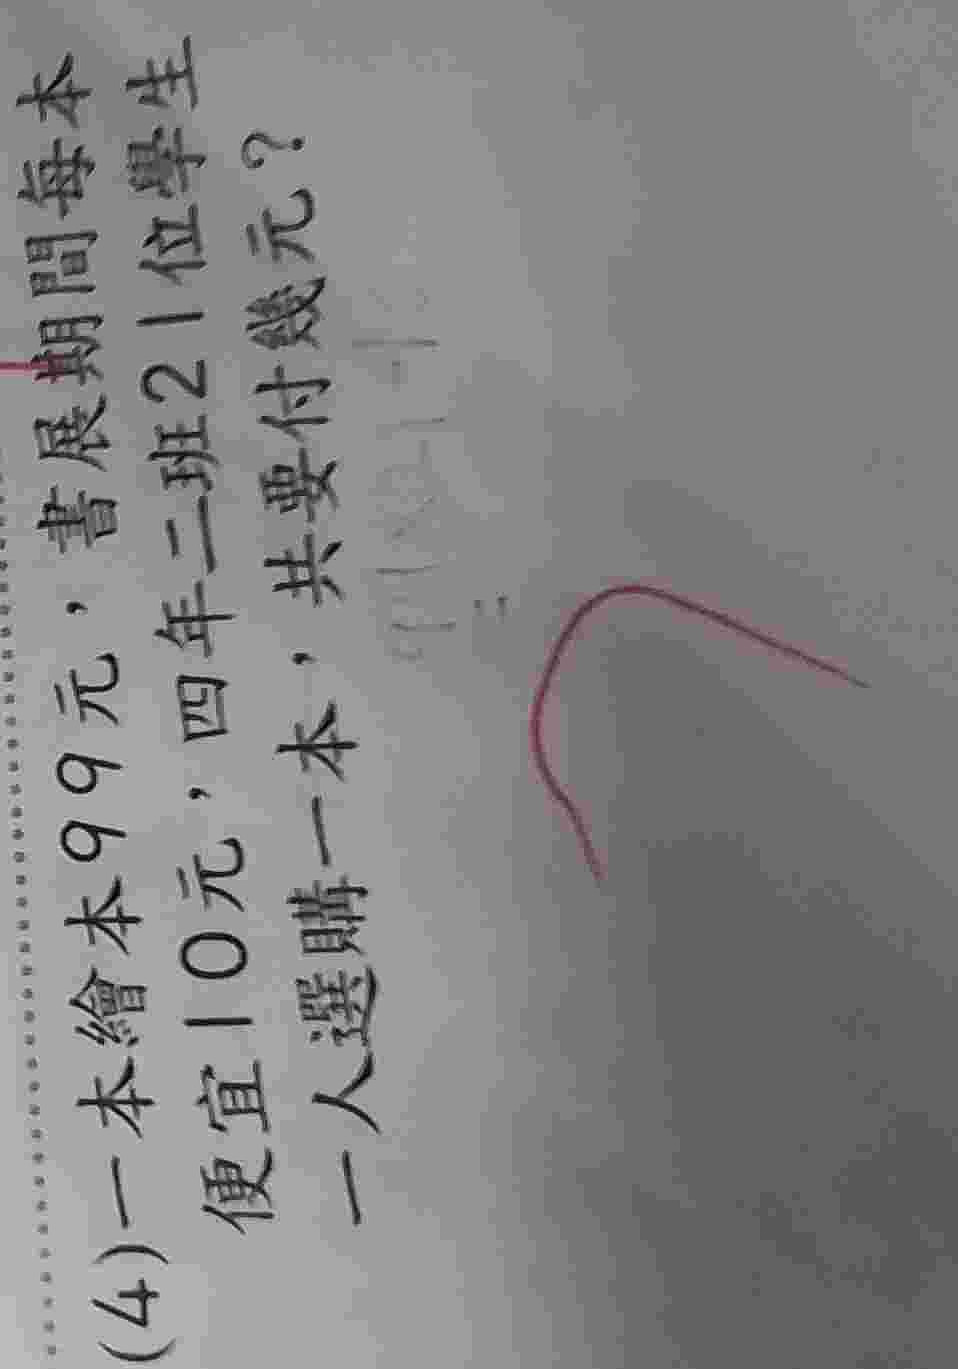 (4)一本繪本99元，書展期間每本
便宜10元，四年二班21位學生
一人選購一本，共要付幾元？